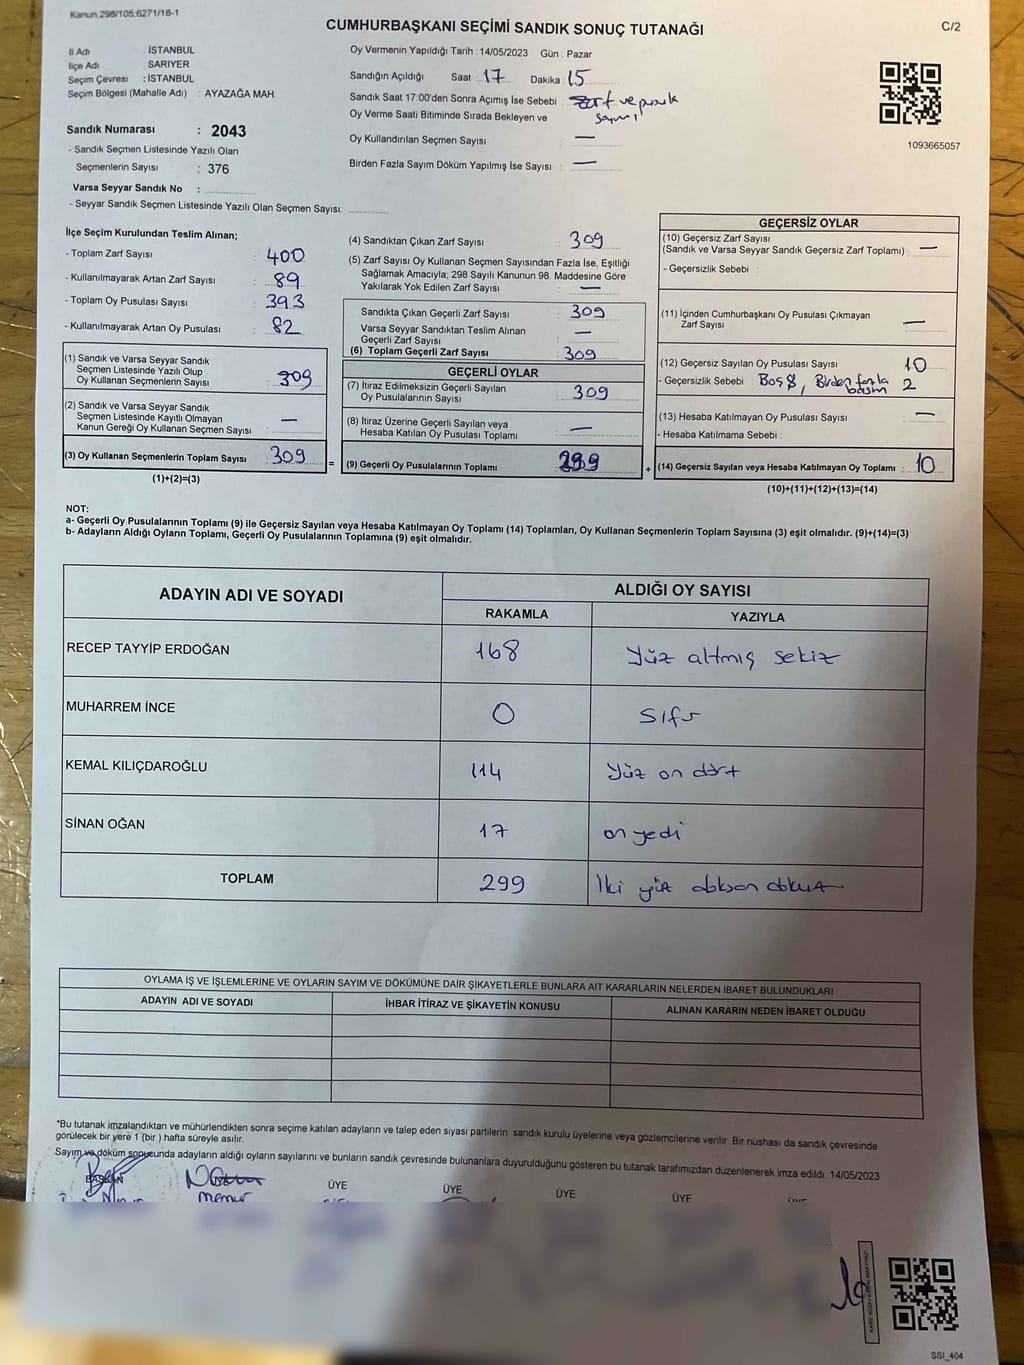 Kanun:298/105;6271/16-1
CUMHURBAŞKANI SEÇİMİ SANDIK SONUÇ TUTANAĞI
C/2
İl Adı İSTANBUL
İlçe Adı SARIYER
Seçim Çevresi : İSTANBUL
Seçim Bölgesi (Mahalle Adı) : AYAZAĞA MAH.
Oy Vermenin Yapıldığı Tarih : 14/05/2023 Gün : Pazar
Sandığın Açıldığı Saat 17 Dakika 15
Sandık Saat 17:00'den Sonra Açımış İse Sebebi : Zarf ve pusula
sayımı
Oy Verme Saati Bitiminde Sırada Bekleyen ve
Oy Kullandırılan Seçmen Sayısı : —
Birden Fazla Sayım Döküm Yapılmış İse Sayısı : —
1093665057
Sandık Numarası : 2043
- Sandık Seçmen Listesinde Yazılı Olan
Seçmenlerin Sayısı : 376
Varsa Seyyar Sandık No :
- Seyyar Sandık Seçmen Listesinde Yazılı Olan Seçmen Sayısı:
İlçe Seçim Kurulundan Teslim Alınan;
- Toplam Zarf Sayısı : 400
- Kullanılmayarak Artan Zarf Sayısı : 89
- Toplam Oy Pusulası Sayısı : 393
- Kullanılmayarak Artan Oy Pusulası : 82
(1) Sandık ve Varsa Seyyar Sandık
Seçmen Listesinde Yazılı Olup
Oy Kullanan Seçmenlerin Sayısı : 309
(2) Sandık ve Varsa Seyyar Sandık
Seçmen Listesinde Kayıtlı Olmayan
Kanun Gereği Oy Kullanan Seçmen Sayısı : —
(3) Oy Kullanan Seçmenlerin Toplam Sayısı : 309
(1)+(2)=(3)
(4) Sandıktan Çıkan Zarf Sayısı : 309
(5) Zarf Sayısı Oy Kullanan Seçmen Sayısından Fazla İse, Eşitliği
Sağlamak Amacıyla; 298 Sayılı Kanunun 98. Maddesine Göre
Yakılarak Yok Edilen Zarf Sayısı : —
Sandıkta Çıkan Geçerli Zarf Sayısı : 309
Varsa Seyyar Sandıktan Teslim Alınan
Geçerli Zarf Sayısı : —
(6) Toplam Geçerli Zarf Sayısı : 309
GEÇERLİ OYLAR
(7) İtiraz Edilmeksizin Geçerli Sayılan
Oy Pusulalarının Sayısı : 309
(8) İtiraz Üzerine Geçerli Sayılan veya
Hesaba Katılan Oy Pusulası Toplamı : —
= (9) Geçerli Oy Pusulalarının Toplamı : 299
GEÇERSİZ OYLAR
(10) Geçersiz Zarf Sayısı
(Sandık ve Varsa Seyyar Sandık Geçersiz Zarf Toplamı) : —
- Geçersizlik Sebebi :
(11) İçinden Cumhurbaşkanı Oy Pusulası Çıkmayan
Zarf Sayısı : —
(12) Geçersiz Sayılan Oy Pusulası Sayısı : 10
- Geçersizlik Sebebi : Boş 8, Birden fazla basım 2
(13) Hesaba Katılmayan Oy Pusulası Sayısı : —
- Hesaba Katılmama Sebebi :
+ (14) Geçersiz Sayılan veya Hesaba Katılmayan Oy Toplamı : 10
(10)+(11)+(12)+(13)=(14)
NOT:
a- Geçerli Oy Pusulalarının Toplamı (9) ile Geçersiz Sayılan veya Hesaba Katılmayan Oy Toplamı (14) Toplamları, Oy Kullanan Seçmenlerin Toplam Sayısına (3) eşit olmalıdır. (9)+(14)=(3)
b- Adayların Aldığı Oyların Toplamı, Geçerli Oy Pusulalarının Toplamına (9) eşit olmalıdır.
ADAYIN ADI VE SOYADI
ALDIĞI OY SAYISI
RAKAMLA YAZIYLA
RECEP TAYYİP ERDOĞAN 168 Yüz altmış sekiz
MUHARREM İNCE 0 Sıfır
KEMAL KILIÇDAROĞLU 114 Yüz on dört
SİNAN OĞAN 17 on yedi
TOPLAM 299 İki yüz doksan dokuz
OYLAMA İŞ VE İŞLEMLERİNE VE OYLARIN SAYIM VE DÖKÜMÜNE DAİR ŞİKAYETLERLE BUNLARA AİT KARARLARIN NELERDEN İBARET BULUNDUKLARI
ADAYIN ADI VE SOYADI İHBAR İTİRAZ VE ŞİKAYETİN KONUSU ALINAN KARARIN NEDEN İBARET OLDUĞU
*Bu tutanak imzalandıktan ve mühürlendikten sonra seçime katılan adayların ve talep eden siyasi partilerin sandık kurulu üyelerine veya gözlemcilerine verilir. Bir nüshası da sandık çevresinde
görülecek bir yere 1 (bir ) hafta süreyle asılır.
Sayım ve döküm sonucunda adayların aldığı oyların sayılarını ve bunların sandık çevresinde bulunanlara duyurulduğunu gösteren bu tutanak tarafımızdan düzenlenerek imza edildi. 14/05/2023
BAŞKAN ÜYE ÜYE ÜYE ÜYE
memur
SSI_404